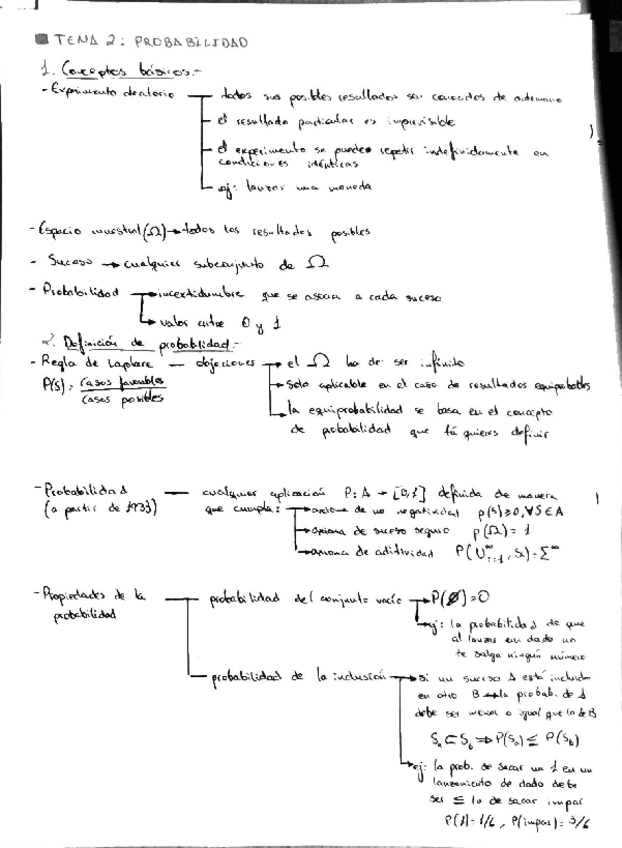 TEMA 2: PROBABILIDAD
1. Conceptos básicos.-
- Experimento aleatorio — todos sus posibles resultados son conocidos de antemano
— el resultado particular es imprevisible
— el experimento se puede repetir indefinidamente en
condiciones idénticas
— ej: lanzar una moneda
- Espacio muestral (Ω) → todos los resultados posibles
- Suceso → cualquier subconjunto de Ω
- Probabilidad → incertidumbre que se asocia a cada suceso
→ valor entre 0 y 1
2. Definición de probabilidad.-
- Regla de Laplace — objeciones → el Ω ha de ser infinito
P(S) = casos favorables / casos posibles
→ Solo aplicable en el caso de resultados equiprobables
→ la equiprobabilidad se basa en el concepto
de probabilidad que tú quieres definir
- Probabilidad — cualquier aplicación P: A → [0,1] definida de manera
(a partir de 1933) que cumpla: → axioma de no negatividad p(S)≥0, ∀S∈A
→ axioma de suceso seguro p(Ω) = 1
→ axioma de aditividad P(U∞i=1, Si) = Σ∞
- Propiedades de la — probabilidad del conjunto vacío → P(Ø)=0
probabilidad
→ ej: la probabilidad de que
al lanzar un dado no
te salga ningún número
— probabilidad de la inclusión → si un suceso A está incluido
en otro B → la probab. de A
debe ser menor o igual que la de B
Sa ⊂ Sb ⇒ P(Sa) ≤ P(Sb)
→ ej: la prob. de sacar un 1 en un
lanzamiento de dado debe
ser ≤ la de sacar impar
P(1) = 1/6, P(impar) = 3/6